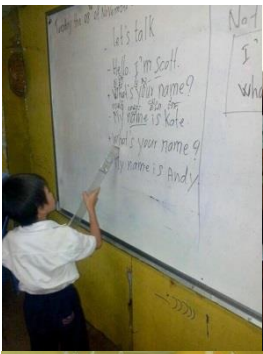 of November
Let's talk
- Hello I'm Scott.
- What's your name?
My name is Kate
- What's your name?
My name is Andy
Not
I'
Wha